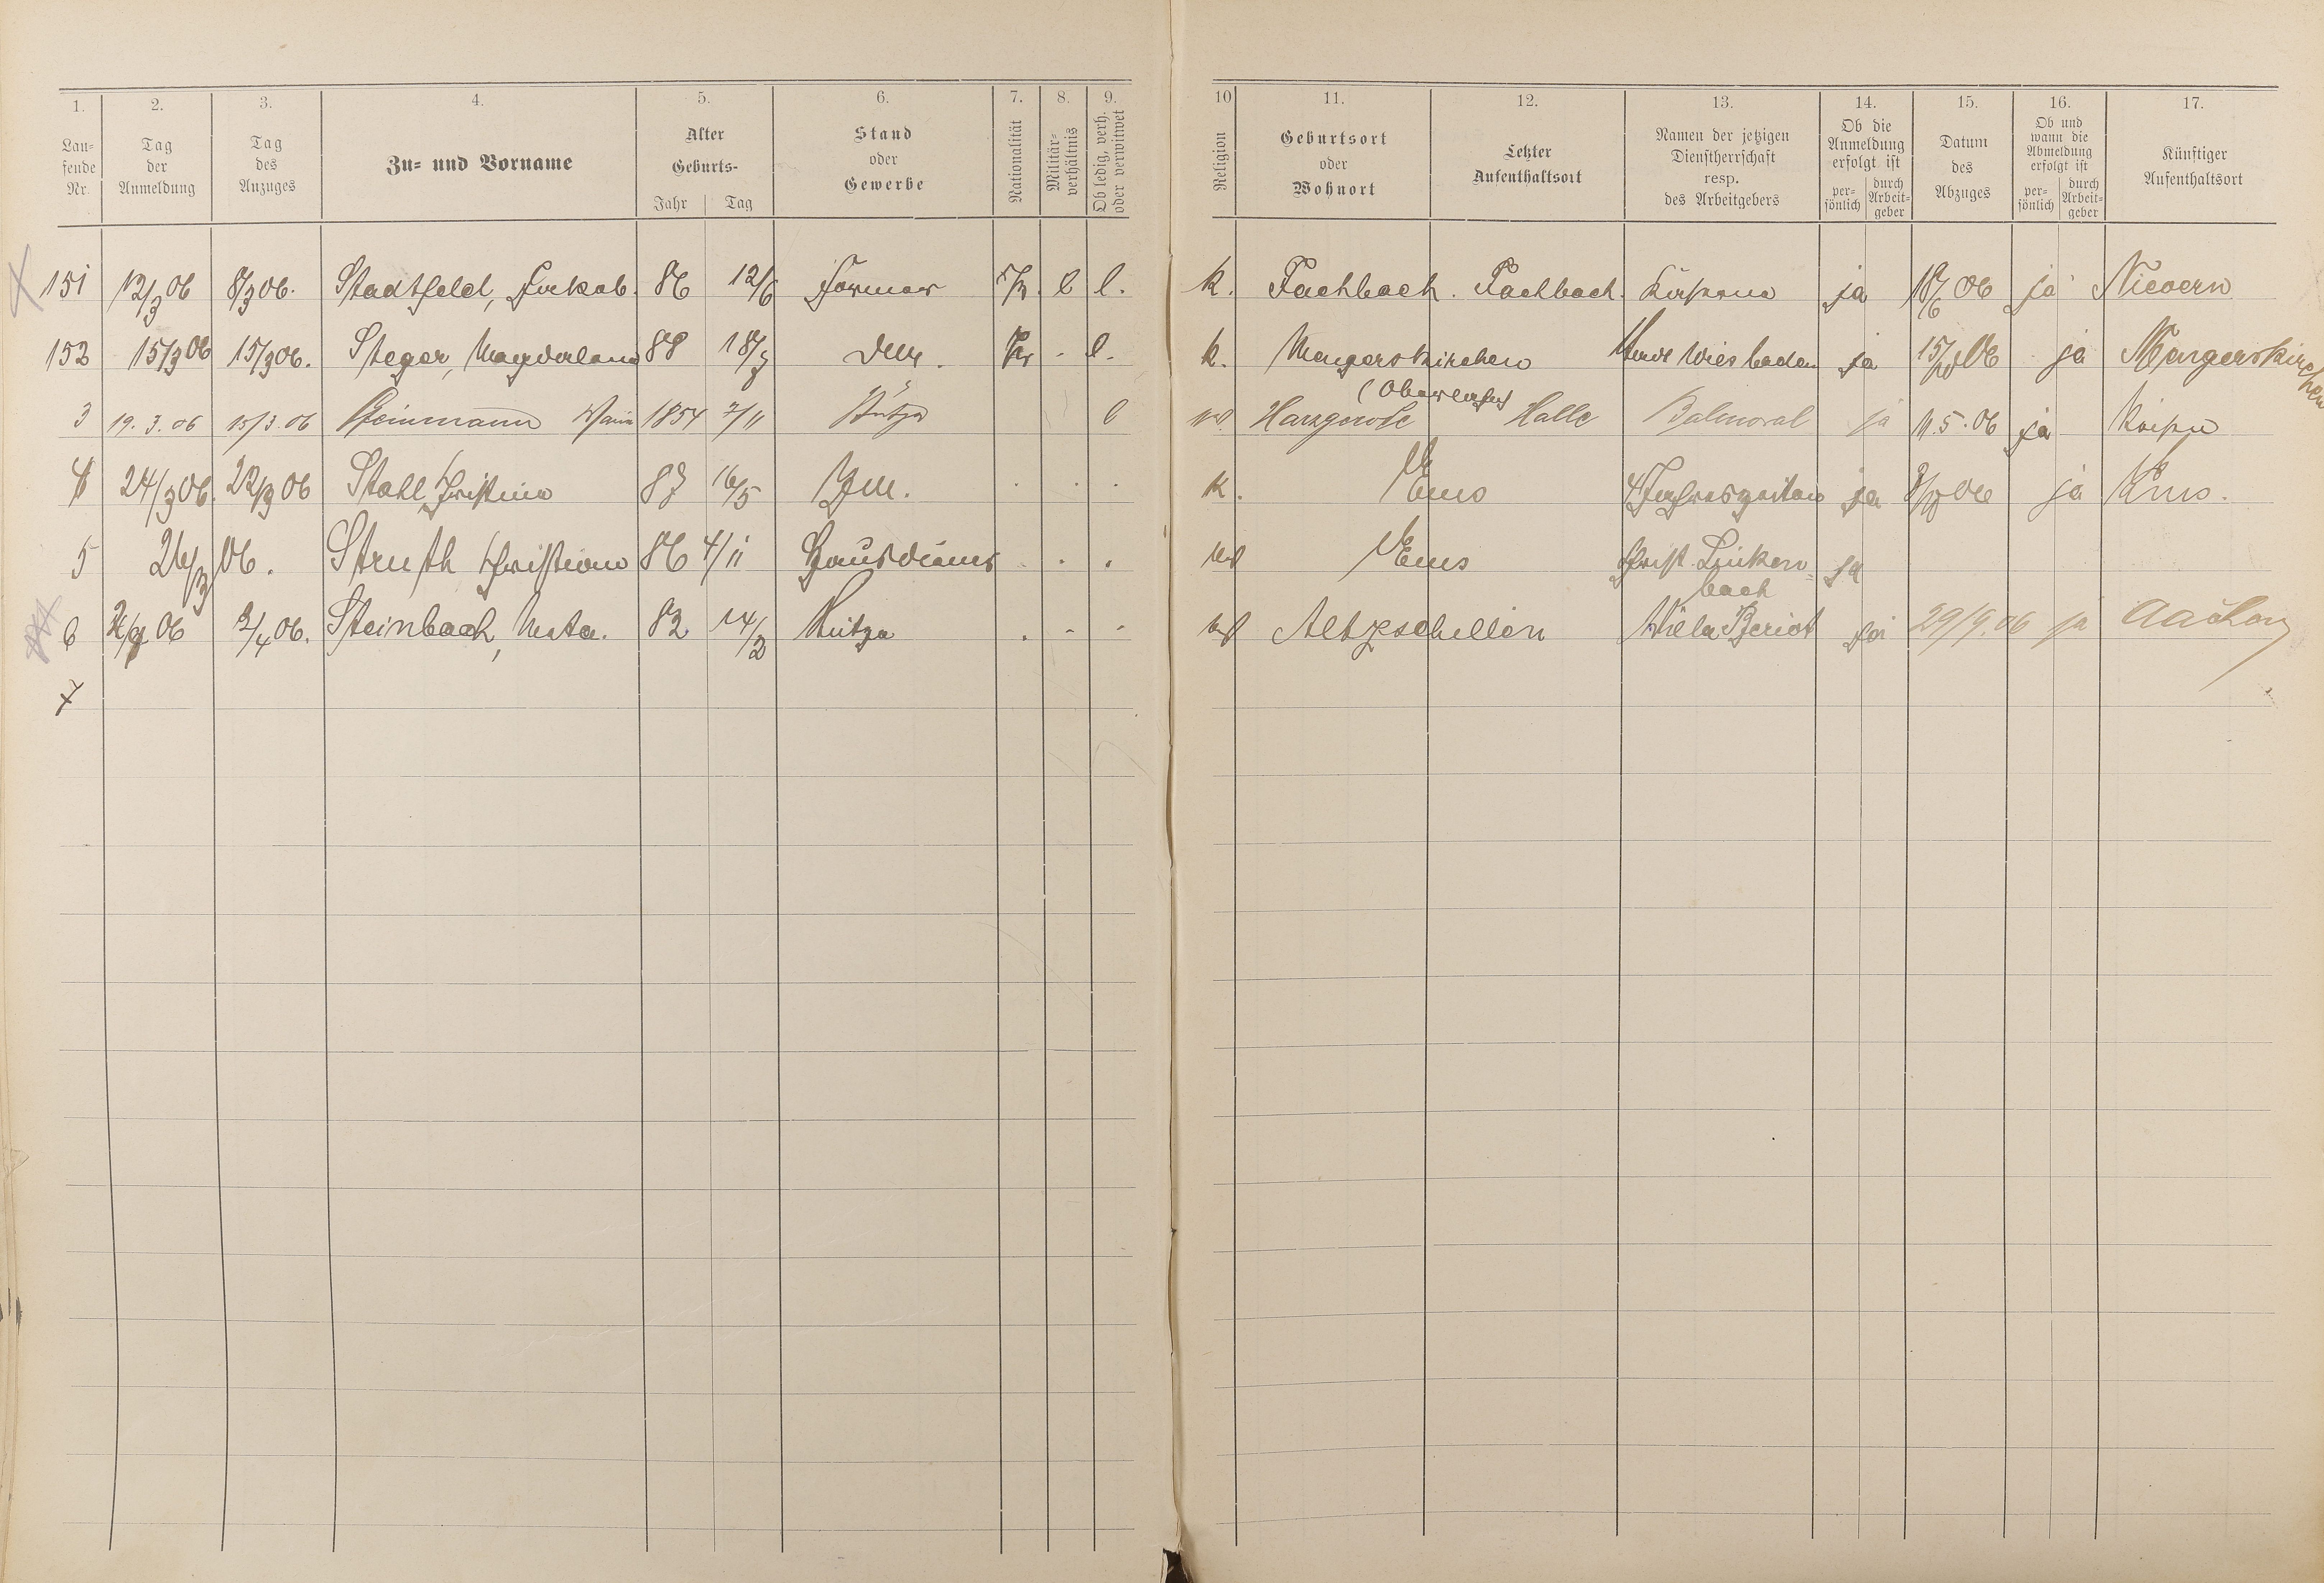 1. 2. 3. 4. 5. 6. 7. 8. 9. 10 11. 12. 13. 14. 15. 16. 17.
Lau-
fende
Nr.
Tag
der
Anmeldung
Tag
des
Anzuges
Zu- und Vorname
Alter
Geburts-
Jahr Tag
Stand
oder
Gewerbe
Nationalität
Militär-
verhältnis
Ob ledig, verh.
oder verwitwet
Religion
Geburtsort
oder
Wohnort
Letzter
Aufenthaltsort
Namen der jetzigen
Dienstherrschaft
resp.
des Arbeitgebers
Ob die
Anmeldung
erfolgt ist
per-
sönlich
durch
Arbeit-
geber
Datum
des
Abzuges
Ob und
wann die
Abmeldung
erfolgt ist
per-
sönlich
durch
Arbeit-
geber
Künftiger
Aufenthaltsort
151 12/3 06 8/3 06. Stadtfeld, Jakob. 86 12/6 Former Pr. l l. k. Fachbach. Fachbach. ja 18/6 06 ja Nievern
152 15/3 06 15/3 06. Steger, Magdalena 88 18/7 Pr . l. k. Mengerskirchen Wiesbaden ja 06 ja Mengerskirchen
(Oberlahn)
3 19. 3. 06 15/3. 06 Steinmann 1854 7/11 Stütze l Harzgerode Halle Balmoral ja 11. 5. 06 ja
4 24/3 06. 22/3 06 Stahl Christine 87 16/5 . . . k. Ems ja 06 ja Ems.
5 26/3 06. Struth Christian 86 4/11 Hausdiener . . . Ems Christ. Linken-
bach ja
6 06 2/4 06. Steinbach, Meta. 82 14/2 Stütze . - - Altzschillen Villa Beriot ja 29/9. 06 ja Aachen
7